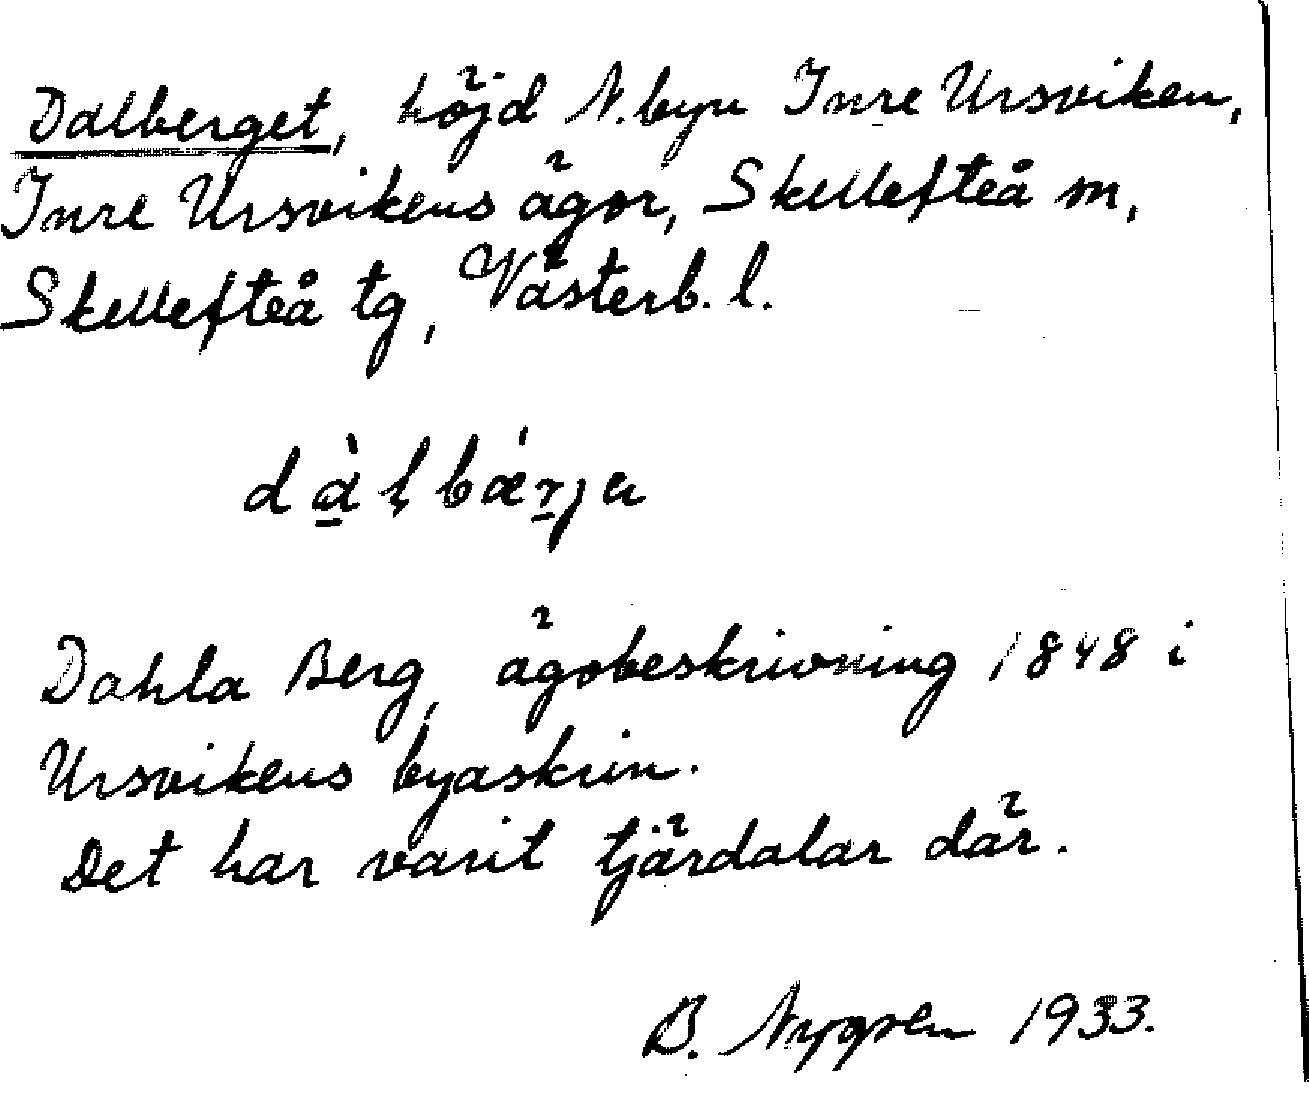 Dalberget, höjd N. byn Inre Ursviken,
Inre Ursvikens ägor, Skellefteå m,
Skellefteå tg, Västerb. l.
dàɭbǽrjɐ
Dahla Berg, ägobeskrivning 1848 i
Ursvikens byaskrin.
Det har varit tjärdalar där.
B. Nygren 1933.